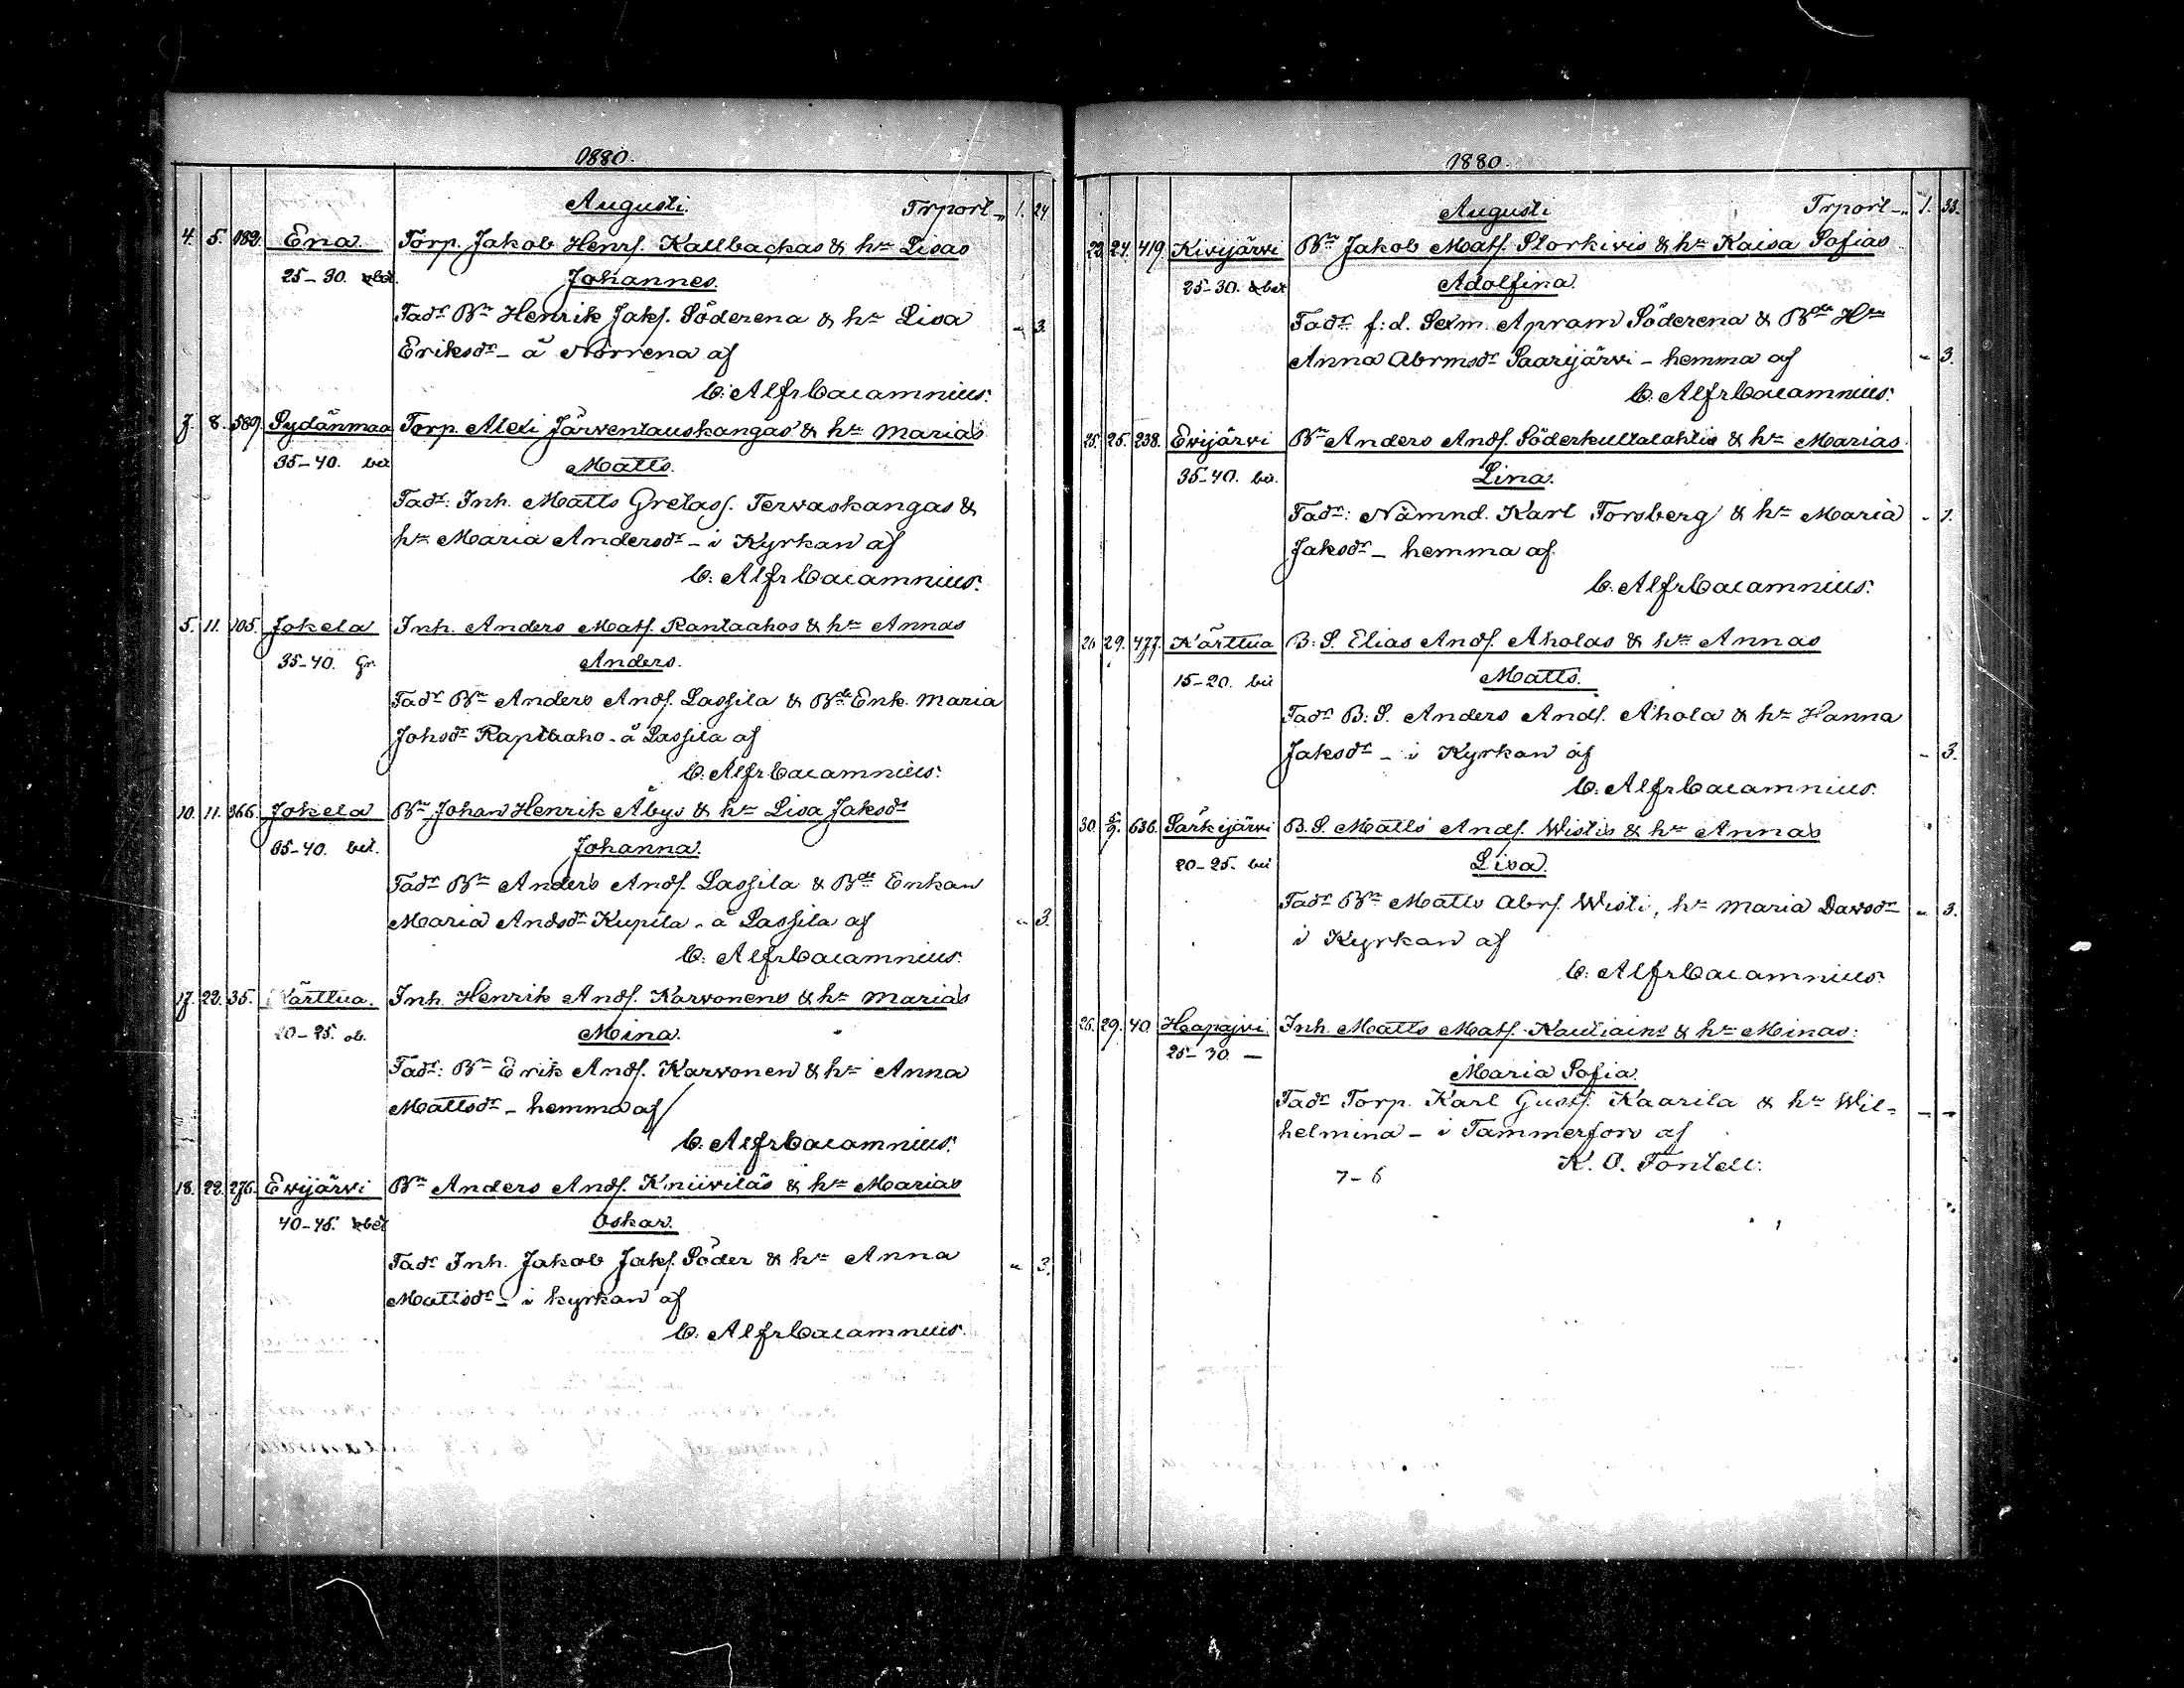 1880.
Augusti. Trport „ 1. 24
4. 5. 182. Ena. Torp. Jakob Henrs. Kallbackas & hu Lisas
25-30. obet. Johannes.
Fadr Bn Henrik Jaks. Söderena & hu Lisa - 3.
Eriksdr - å Norrena af
C: Alfr Cacamnius.
7. 8. 589. Sydänmaa Torp. Alexi Järventauskangas & hu Marias
35-40. bet Matts.
Fadr: Inh. Matts Gretass. Tervaskangas &
hu Maria Andersdr - i Kyrkan af
C: Alfr Cacamnius.
5. 11. 105. Jokela Inh. Anders Mats. Rantaahos & hu Annas
35-40. Gr. Anders.
Fadr Bn Anders Ands. Lassila & Bde Enk. Maria
Johsdr Rantaaho - å Lassila af
C: Alfr Cacamnius.
10. 11. 366. Jokela Bn Johan Henrik Åbys & hu Lisa Jaksdr
35-40. bet. Johanna.
Fadr Bn Anders Ands. Lassila & Bde Enkan
Maria Andsdr Kupila - å Lassila af - 3.
C: Alfr Cacamnius.
17. 22. 35. Kärttua. Inh. Henrik Ands. Karvonens & hu Marias
20-25. ob. Mina.
Fadr: Bn Erik Ands. Karvonen & hu Anna
Mattsdr - hemma af
C: Alfr Cacamnius.
18. 22. 276. Evijärvi Bn Anders Ands. Kniiviläs & hu Marias
40-45. obet Oskar.
Fadr Inh. Jakob Jaks. Söder & hu Anna - 3.
Mattsdr - i kyrkan af
C: Alfr Cacamnius.
1880.
Augusti Trport „ 1. 33.
23. 24. 419. Kivijärvi Bn Jakob Mats. Storkivis & hu Kaisa Sofias
25-30. obet Adolfina.
Fadr f:d. Sexm. Apram Söderena & Bde Hu
Anna Abrmsdr Saarijärvi - hemma af - 3.
C: Alfr Cacamnius.
25. 25. 238. Evijärvi Bn Anders Ands. Söderkultalahtis & hu Marias
35-40. bet. Lina.
Fadr: Nämnd. Karl Forsberg & hu Maria - 1.
Jaksdr - hemma af
C: Alfr Cacamnius.
26 29. 477. Kärttua B: S. Elias Ands. Aholas & hu Annas
15-20. bet Matts.
Fadr B: S. Anders Ands. Ahola & hu Hanna
Jaksdr - i Kyrkan af - 3.
C: Alfr Cacamnius.
30. 5/9. 636. Särkijärvi B. S. Matts Ands. Wistis & hu Annas
20-25. bet Lisa.
Fadr Bn Matts Abrs. Wisti, hu Maria Davsdr - 3.
i Kyrkan af
C: Alfr Cacamnius.
26. 29. 40 Haapajvi Inh. Matts Mats. Kautiains & hu Minas:
25-30. - Maria Sofia.
Fadr Torp. Karl Gusts. Kaarila & hu Wil- - -
helmina - i Tammerfors af
K. O. Fontell.
7-6